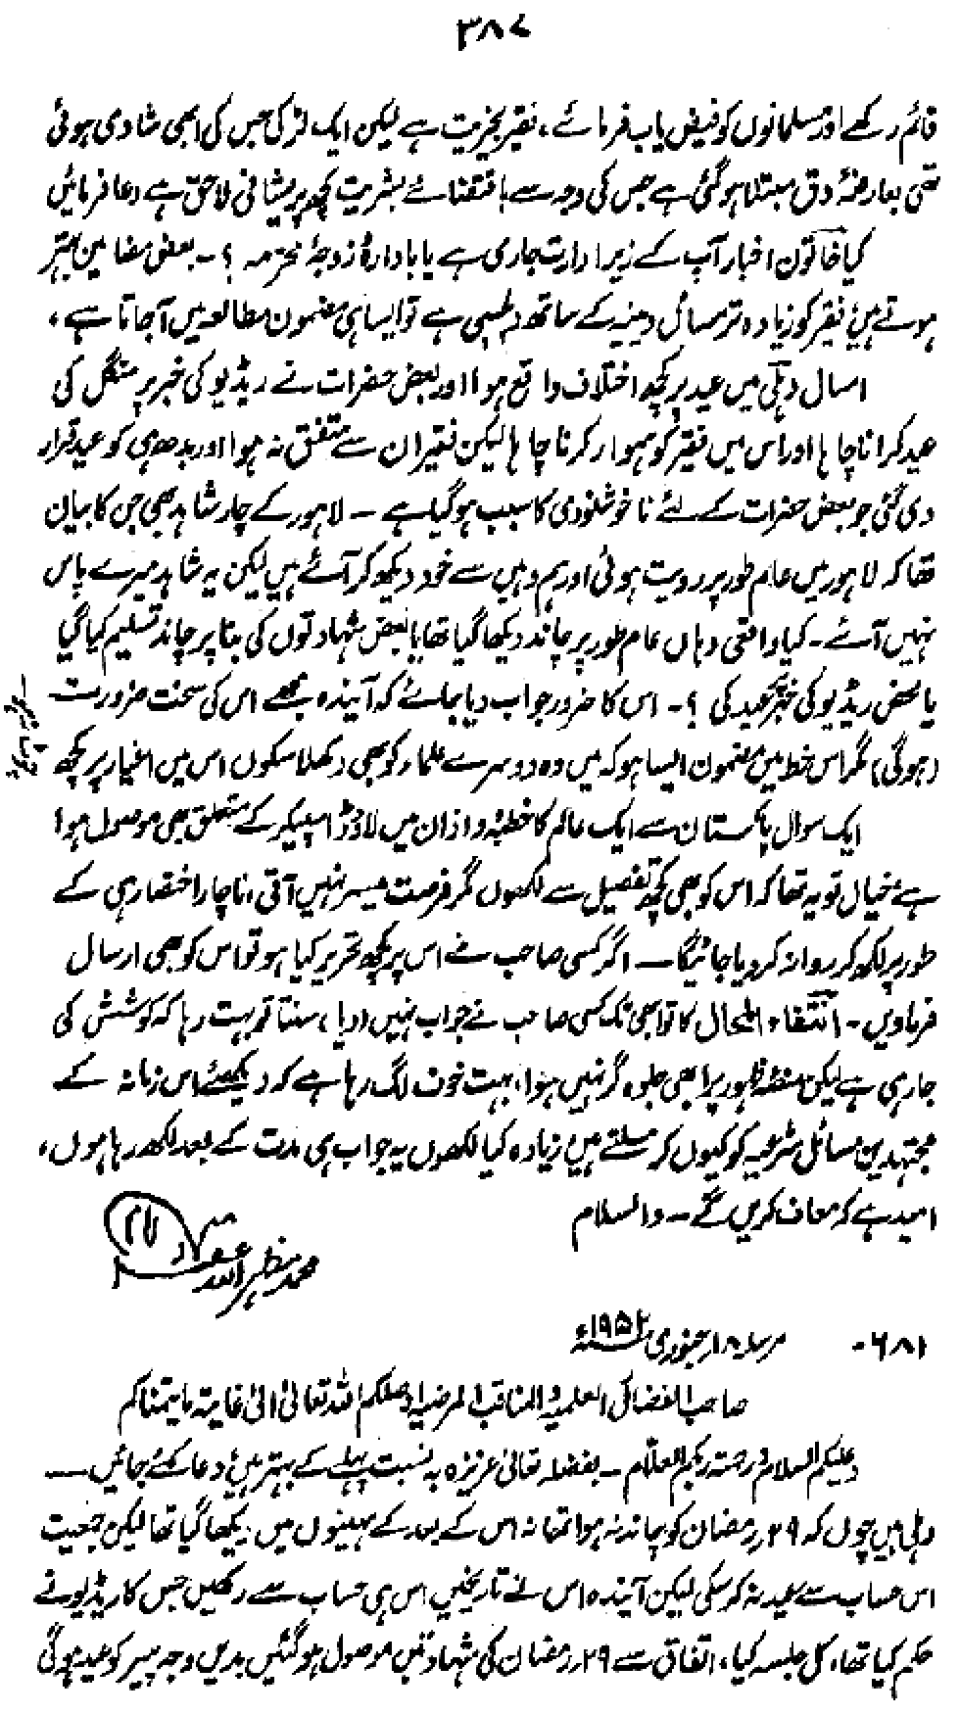 ۳۸۷
قائم رکھے اور مسلمانوں کو فیض یاب فرمائے، فقیر بخیریت ہے لیکن ایک لڑکی جس کی ابھی شادی ہوئی
تھی بعارضۂ دق مبتلا ہوگئی ہے جس کی وجہ سے باقتضائے بشریت کچھ پریشانی لاحق ہے دعا فرمائیں
کیا خاتون اخبار آپ کے زیر ادارت جاری ہے یا بادارۂ زوجۂ محترمہ ؟ - بعض مضامین بہتر
ہوتے ہیں فقیر کو زیادہ تر مسائل دینیہ کے ساتھ دلچسپی ہے تو ایسا ہی مضمون مطالعہ میں آجاتا ہے،
امسال دہلی میں عید پر کچھ اختلاف واقع ہوا اور بعض حضرات نے ریڈیو کی خبر پر منگل کی
عید کرانا چاہا اور اس میں فقیر کو ہموار کرنا چاہا لیکن فقیر ان سے متفق نہ ہوا اور بدھ ہی کو عید قرار
دی گئی جو بعض حضرات کے لئے ناخوشنودی کا سبب ہوگیا ہے - لاہور کے چار شاہد بھی جن کا بیان
تھا کہ لاہور میں عام طور پر رویت ہوئی اور ہم وہیں سے خود دیکھ کر آئے ہیں لیکن یہ شاہد میرے پاس
نہیں آئے - کیا واقعی وہاں عام طور پر چاند دیکھا گیا تھا یا بعض شہادتوں کی بنا پر چاند تسلیم کیا گیا
یا محض ریڈیو کی خبر پر عید کی ؟ - اس کا ضرور جواب دیا جائے کہ آیندہ مجھے اس کی سخت ضرورت
(ہوگی) مگر اس خط میں مضمون ایسا ہو کہ میں وہ دوسرے علماء کو بھی دکھلا سکوں اس میں اغیار پر کچھ
ایک سوال پاکستان سے ایک عالم کا خطبہ و اذان میں لاؤڈ اسپیکر کے متعلق بھی موصول ہوا
ہے خیال تو یہ تھا کہ اس کو بھی کچھ تفصیل سے لکھوں مگر فرصت میسر نہیں آتی، ناچار اختصار ہی کے
طور پر لکھ کر روانہ کردیا جائیگا - اگر کسی صاحب نے اس پر کچھ تحریر کیا ہو تو اس کو بھی ارسال
فرماویں - انتفاء المحال کا تو ابھی تک کسی صاحب نے جواب نہیں (دیا) سنتا تو بہت رہا کہ کوشش کی
جارہی ہے لیکن منصۂ ظہور پر ابھی جلوہ گر نہیں ہوا، بہت خوف لگ رہا ہے کہ دیکھئے اس زمانہ کے
مجتہدین مسائل شرعیہ کو کیوں کر مسلتے ہیں زیادہ کیا لکھوں یہ جواب ہی مدت کے بعد لکھ رہا ہوں،
امید ہے کہ معاف کریں گے - والسلام
محمد مظہر اللہ
۶۸۱ - مرسلہ ۱۸ر جنوری ۱۹۵۲ء
صاحب الفضائل العلمیۃ المناقب المرضیۃ اوصلکم اللہ تعالیٰ الیٰ غایۃ ما یتمناکم
وعلیکم السلام و رحمتہ ربکم العلّام - بفضلہ تعالیٰ عزیزہ بہ نسبت پہلے کے بہتر ہیں دعا کئے جائیں -
دہلی میں چوں کہ ۲۹ رمضان کو چاند نہ ہوا تھا نہ اس کے بعد کے مہینوں میں دیکھا گیا تھا لیکن جمعیت
اس حساب سے عید نہ کرسکی لیکن آیندہ اس نے تاریخیں اس ہی حساب سے رکھیں جس کا ریڈیو نے
حکم کیا تھا، کل جلسہ کیا، اتفاق سے ۲۹ رمضان کی شہادتیں موصول ہوگئیں بدیں وجہ پیر کو عید ہوگی